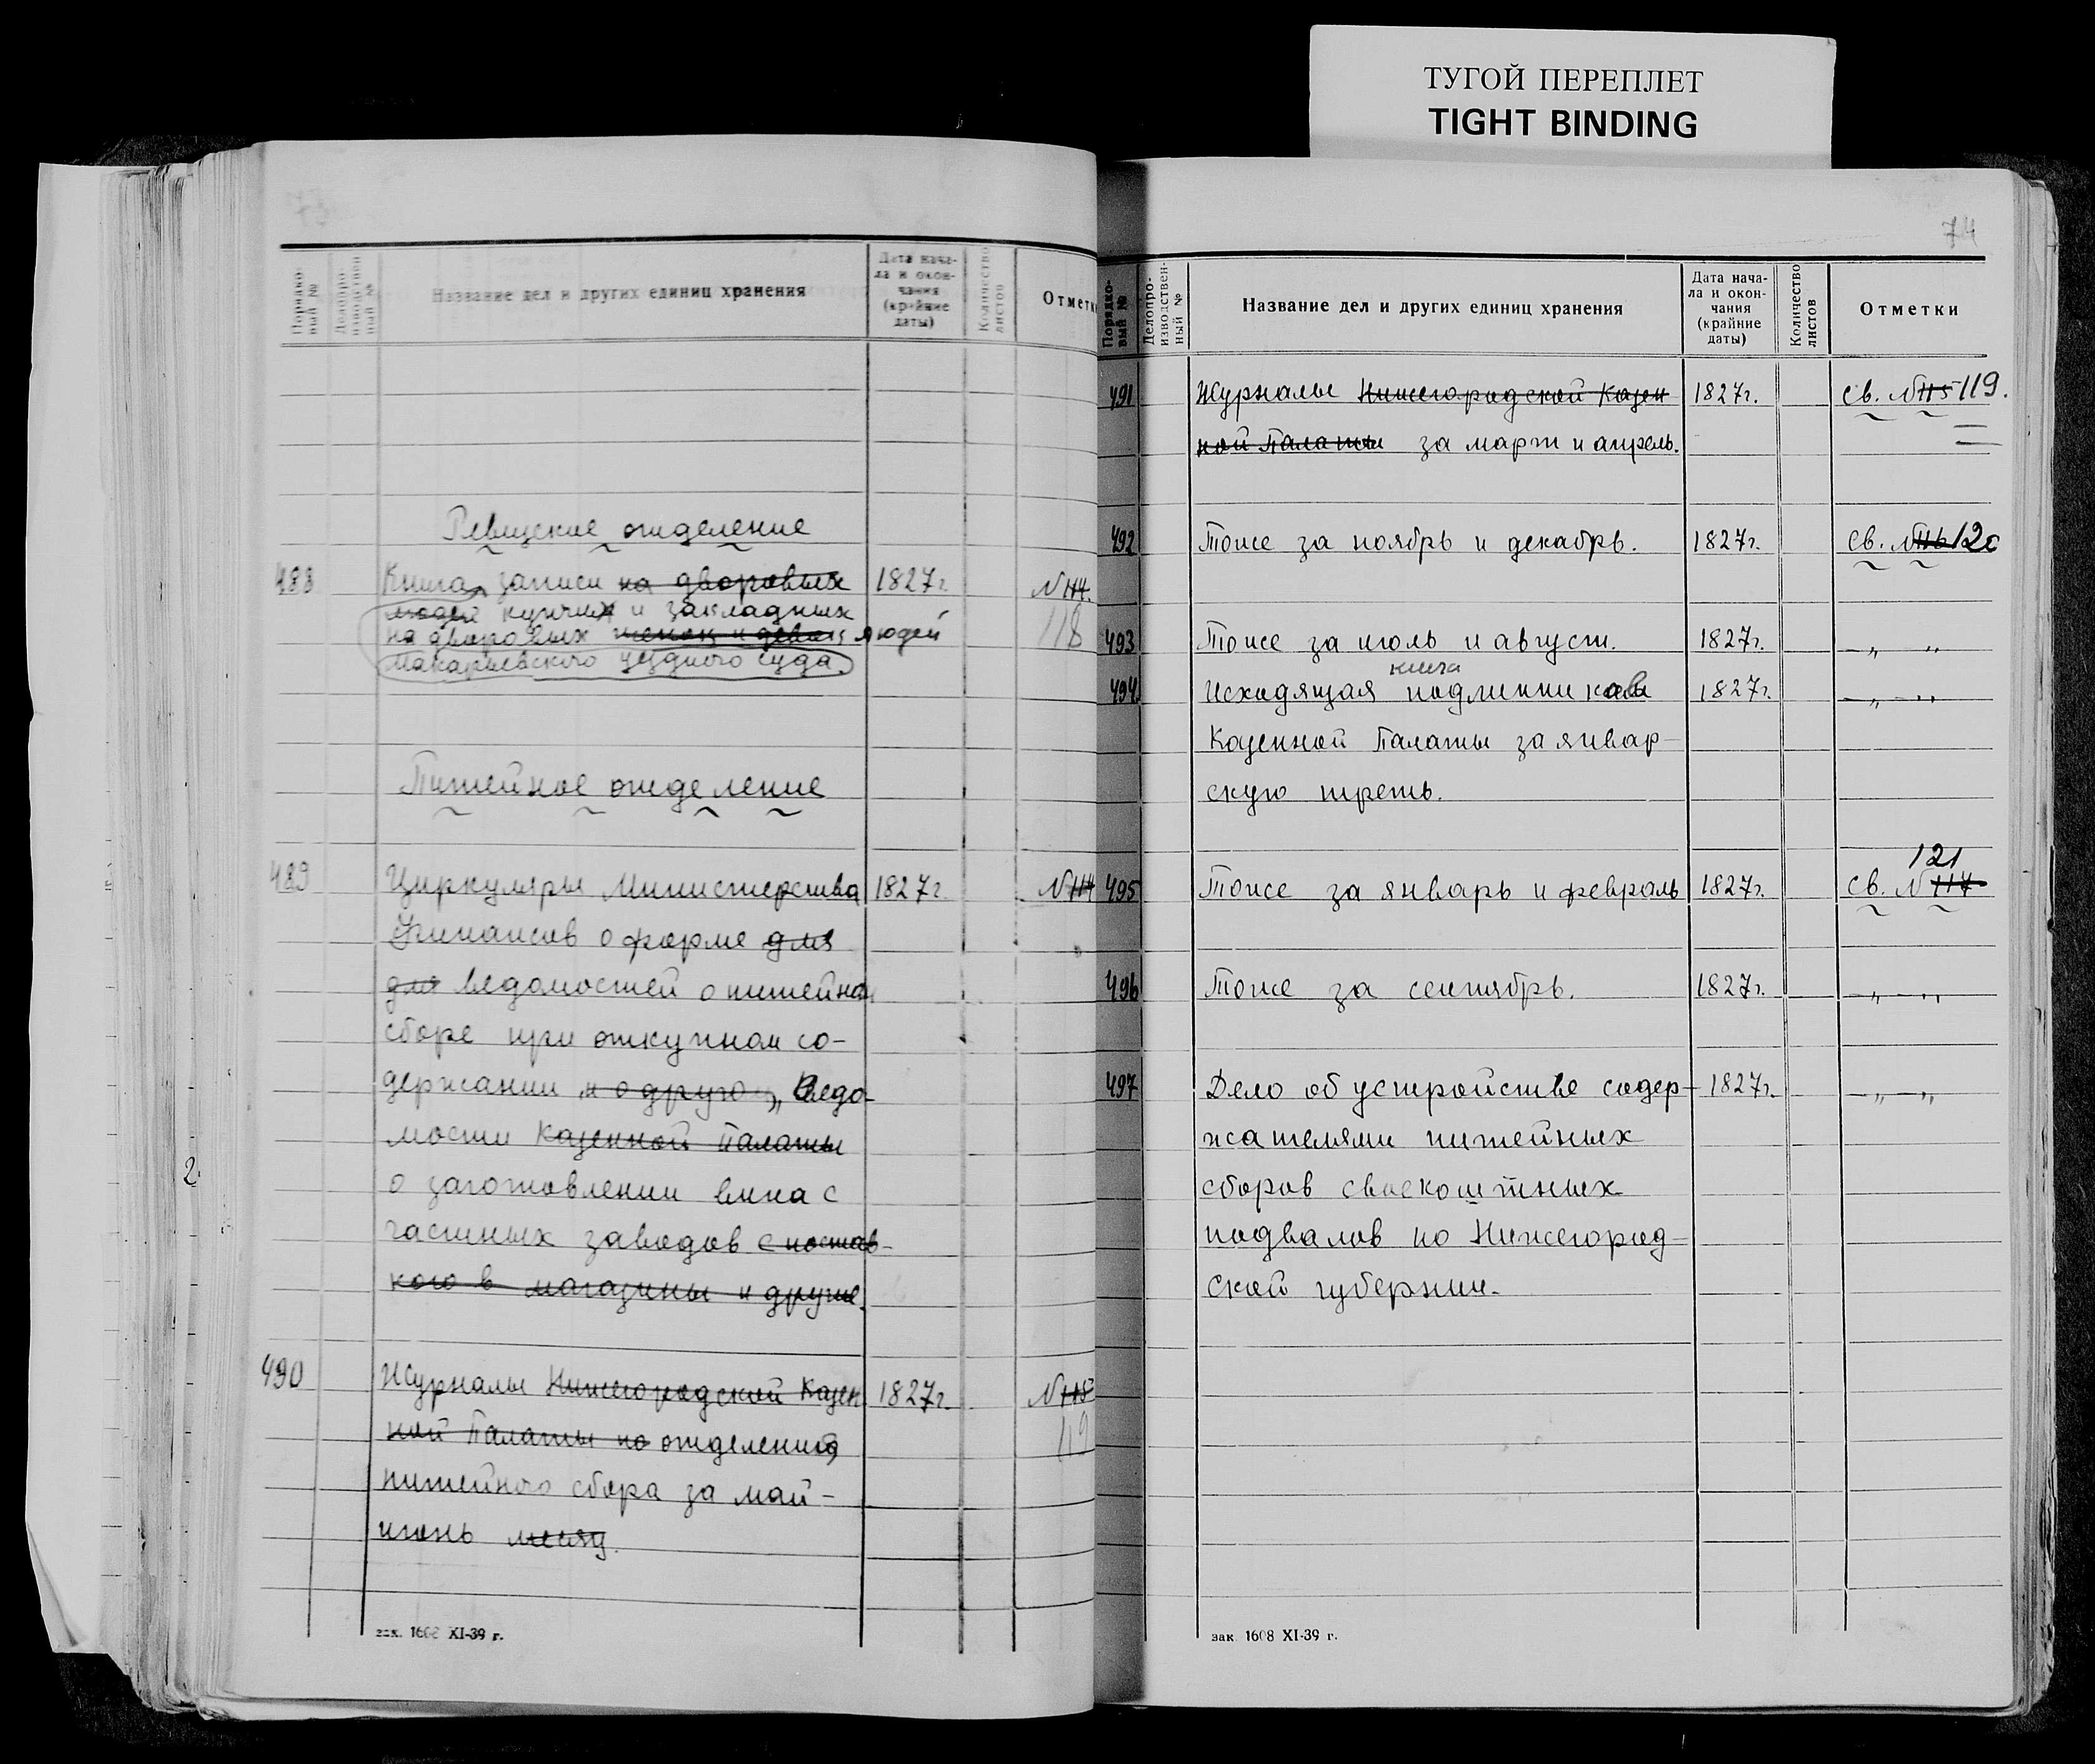 ТУГОЙ ПЕРЕПЛЕТ
TIGHT BINDING
Порядко-
вый №
Делопро-
изводствен-
ный №
Название дел и других единиц хранения
Дата нача-
ла и окон-
чания
(крайние
даты)
Количество
листов
Отметк
Ревизское отделение
488 Книга записи на дворовых 1827г. N 114.
людей купчих и закладных
на дворовых женок и девок людей 118
Макарьевского уездного суда.
Питейное отделение
489 Циркуляры Министерства 1827г. N 114
Финансов о форме для
для ведомостей о питейном
сборе при откупном со-
держании и о друго, Ведо-
мости Казенной Палаты
о заготовлении вина с
частных заводов с постав-
кого в магазины и другие.
490 Журналы Нижегородской Казен 1827г. N 115
ной Палаты по отделению 119
питейного сбора за май-
июнь месяц.
зак. 1608 XI-39 г.
74
Порядко-
вый №
Делопро-
изводствен-
ный №
Название дел и других единиц хранения
Дата нача-
ла и окон-
чания
(крайние
даты)
Количество
листов
Отметки
491 Журналы Нижегородской Казен 1827г. св. N 115 119.
ной Палаты за март и апрель.
492 Тоже за ноябрь и декабрь. 1827г. св. N 116 120
493 Тоже за июль и август. 1827г. —„—„
книга
494. Исходящая подлинников 1827г. —„—„
Казенной Палаты за январ-
скую треть.
121
495 Тоже за январь и февраль 1827г. св. N 117
496 Тоже за сентябрь. 1827г. —„—„
497 Дело об устройстве содер- 1827г. —„—„
жателями питейных
сборов своекоштных
подвалов по Нижегород-
ской губернии.
зак. 1608 XI-39 г.
2.